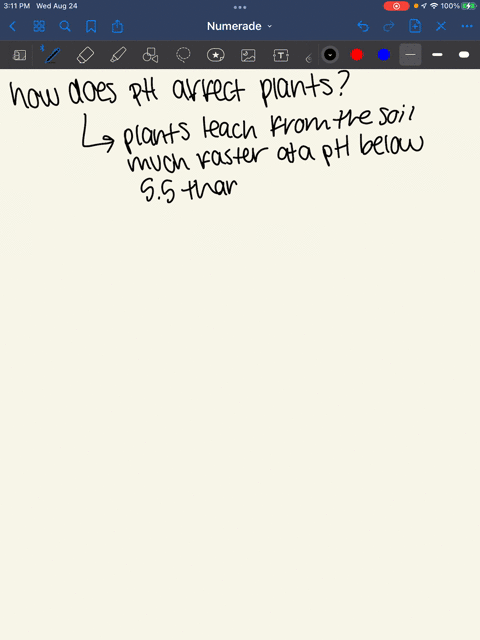 3:11 PM Wed Aug 24
100%
Numerade
how does pH affect plants?
plants leach from the soil
much faster at a pH below
5.5 than